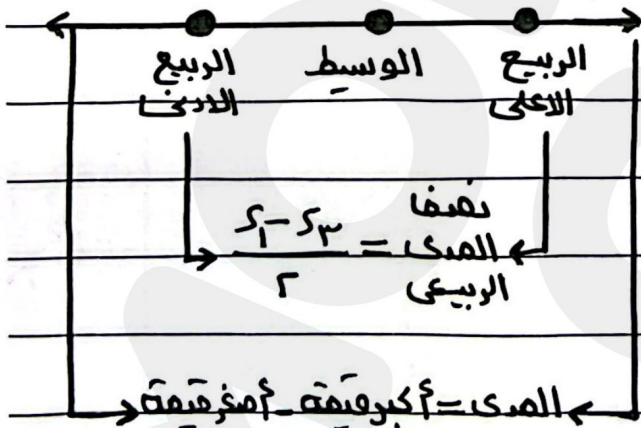 الربيع الاعلى الوسيط الربيع الادنى
نصف المدى الربيعي = (ر٣ - ر١) / ٢
المدى = أكبر قيمة - أصغر قيمة